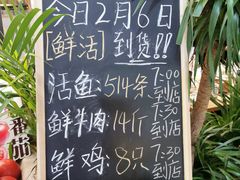 今日2月6日
[鲜活]到货!!
活鱼:514条 7:00到店
鲜牛肉:14斤 7:30到店
鲜鸡:8只 7:30到店
番茄